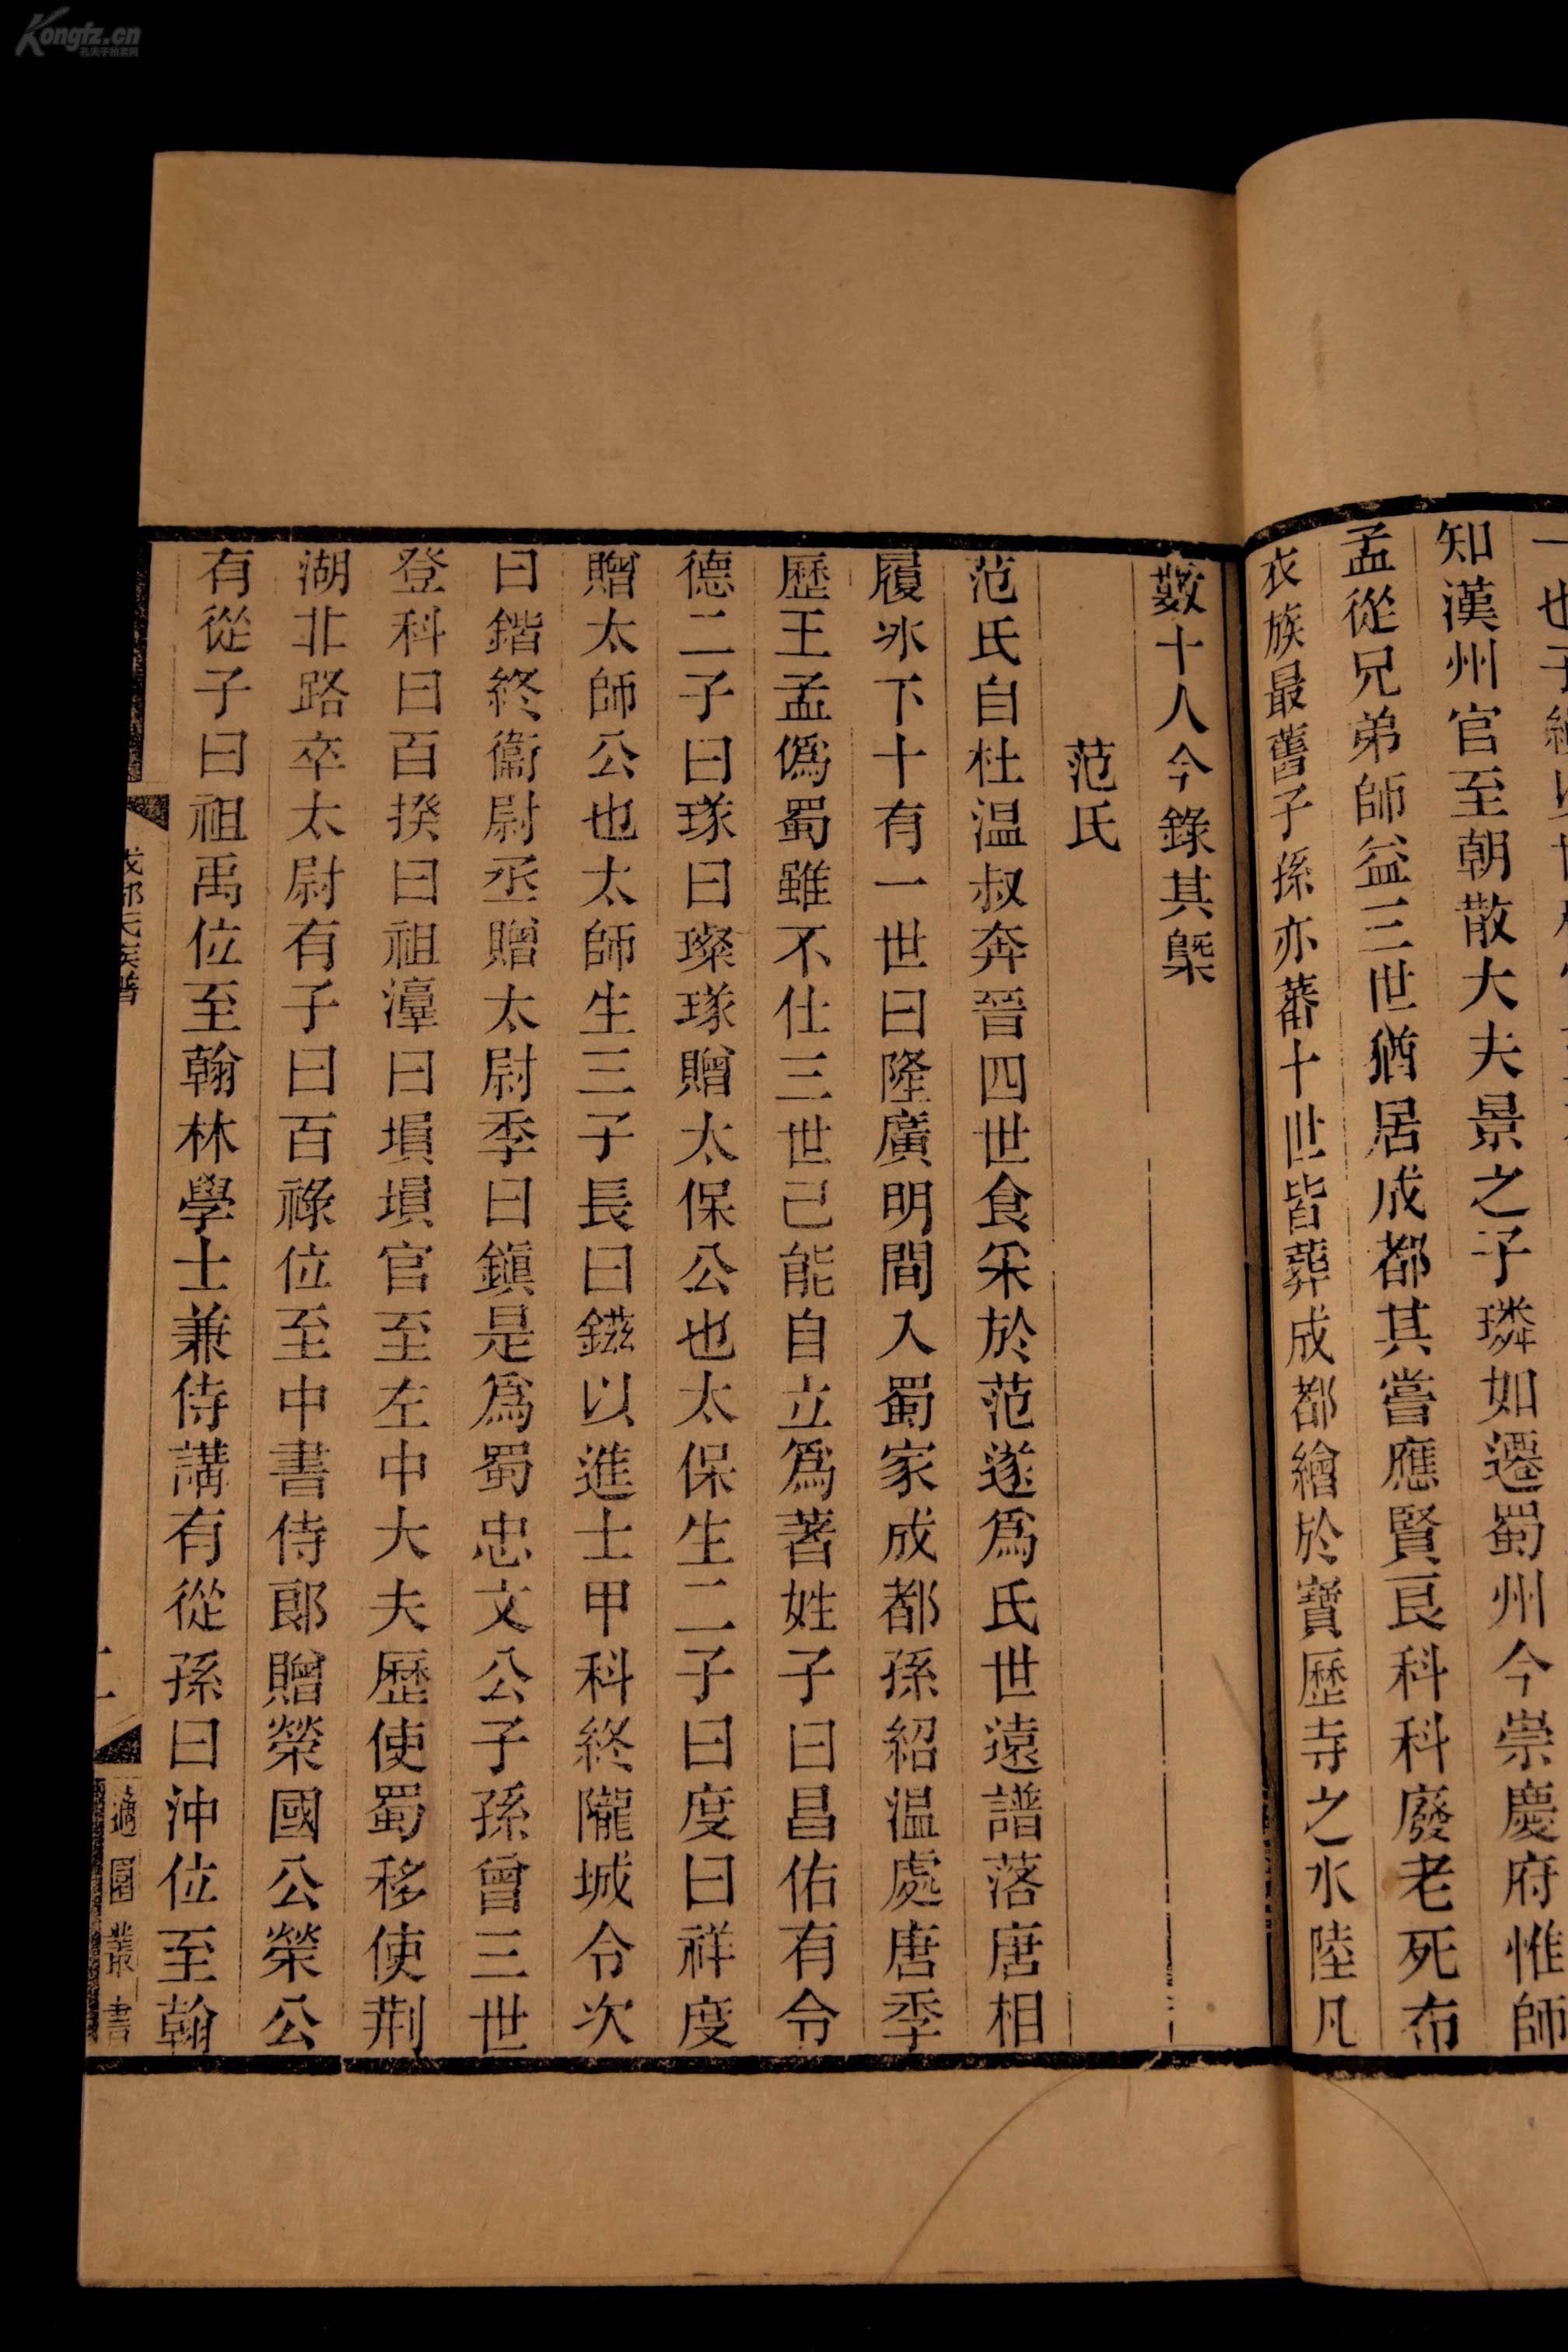 Kongfz.cn
孔夫子拍卖网
知漢州官至朝散大夫景之子璘如遷蜀州今崇慶府惟師
孟從兄弟師益三世猶居成都其嘗應賢良科科廢老死布
衣族最舊子孫亦蕃十世皆葬成都繪於寶歷寺之水陸凡
數十人今錄其槩
范氏
范氏自杜温叔奔晉四世食采於范遂爲氏世遠譜落唐相
履氷下十有一世曰隆廣明間入蜀家成都孫紹温處唐季
歷王孟僞蜀雖不仕三世己能自立爲著姓子曰昌佑有令
德二子曰璲曰璨璲贈太保公也太保生二子曰度曰祥度
贈太師公也太師生三子長曰鎡以進士甲科終隴城令次
曰鍇終衞尉丞贈太尉季曰鎭是爲蜀忠文公子孫曾三世
登科曰百揆曰祖㵫曰塤塤官至左中大夫歷使蜀移使荆
湖北路卒太尉有子曰百祿位至中書侍郎贈榮國公榮公
有從子曰祖禹位至翰林學士兼侍講有從孫曰沖位至翰
成都氏族譜
二
適園叢書